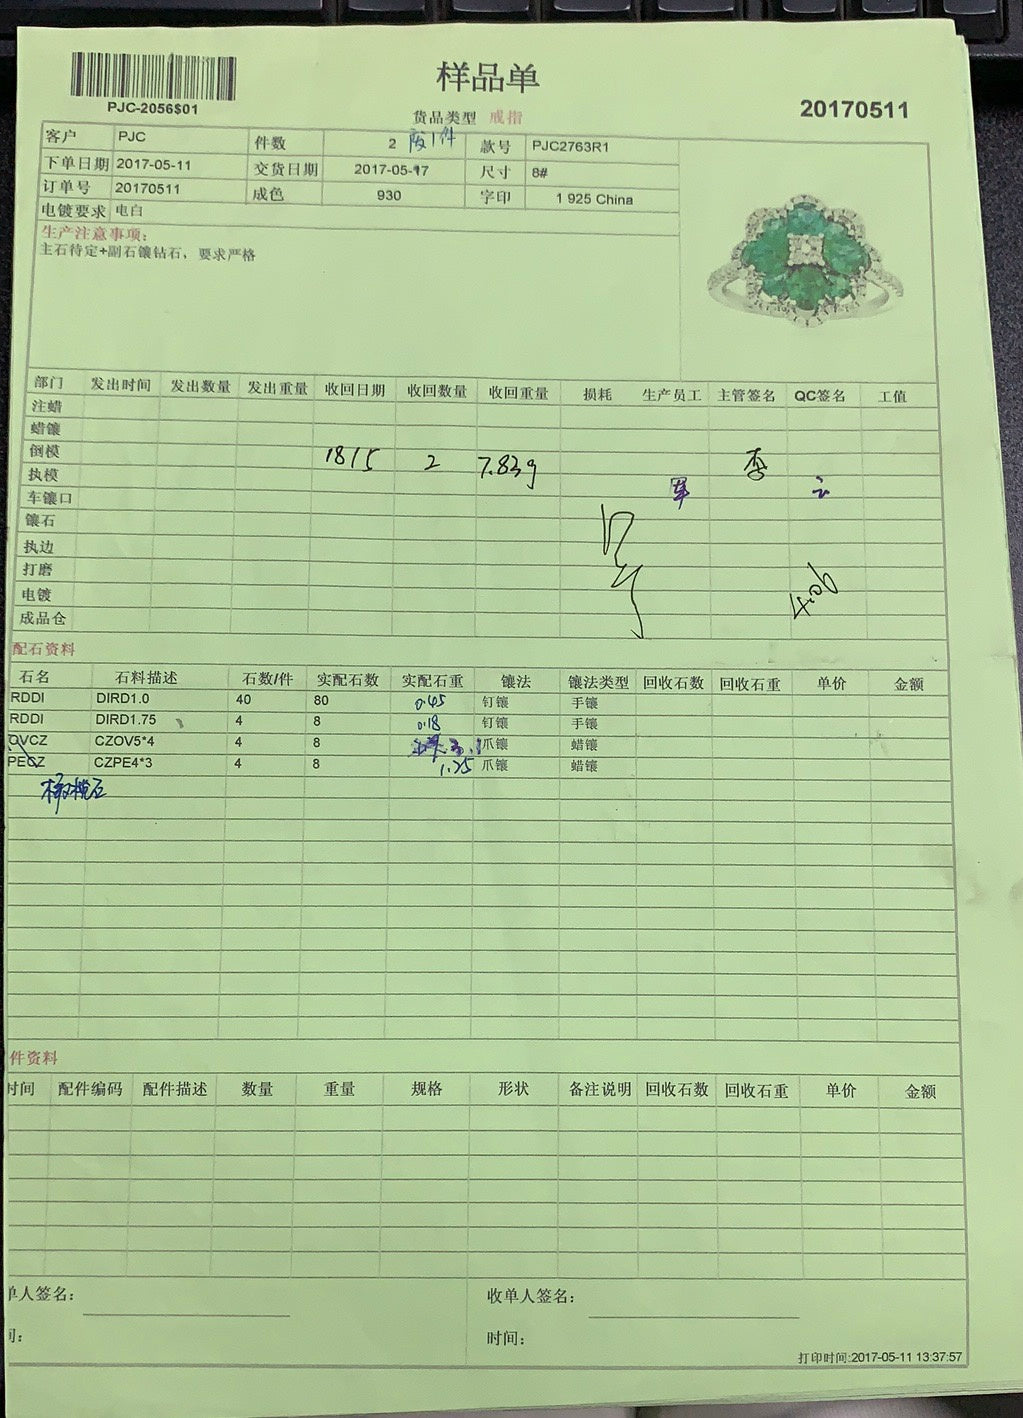 样品单
PJC-2056$01
20170511
货品类型 戒指
客户 PJC 件数 2 1件 款号 PJC2763R1
下单日期 2017-05-11 交货日期 2017-05-17 尺寸 8#
订单号 20170511 成色 930 字印 1 925 China
电镀要求 电白
生产注意事项：
主石待定+副石镶钻石，要求严格
部门 发出时间 发出数量 发出重量 收回日期 收回数量 收回重量 损耗 生产员工 主管签名 QC签名 工值
注蜡
蜡镶
倒模 18/5 2 7.83g 李
执模
车镶口
镶石
执边
打磨
电镀
成品仓
配石资料
石名 石料描述 石数/件 实配石数 实配石重 镶法 镶法类型 回收石数 回收石重 单价 金额
RDDI DIRD1.0 40 80 0.45 钉镶 手镶
RDDI DIRD1.75 4 8 0.18 钉镶 手镶
OVCZ CZOV5*4 4 8 爪镶 蜡镶
PECZ CZPE4*3 4 8 1.25 爪镶 蜡镶
件资料
时间 配件编码 配件描述 数量 重量 规格 形状 备注说明 回收石数 回收石重 单价 金额
单人签名： 收单人签名：
间： 时间：
打印时间:2017-05-11 13:37:57